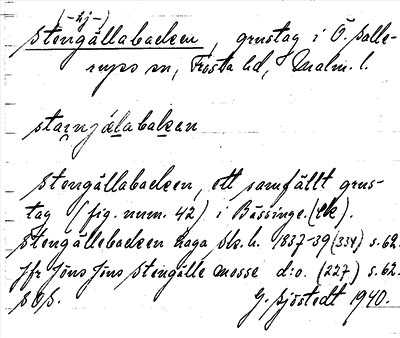 (-äj-)
Stengållabacken, grustag i Ö. Salle-
rups sn, Frosta hd, Malm. l.
Stengållabacken, ett samfällt grus-
tag (fig. num. 42) i Bässinge. (4k).
Stengållebacken haga Sk. h. 1837-39 (334) s. 62.
Jfr Jöns Jöns Stengålle mosse d:o. (227) s. 62.
SOS.
G. Sjöstedt 1940.